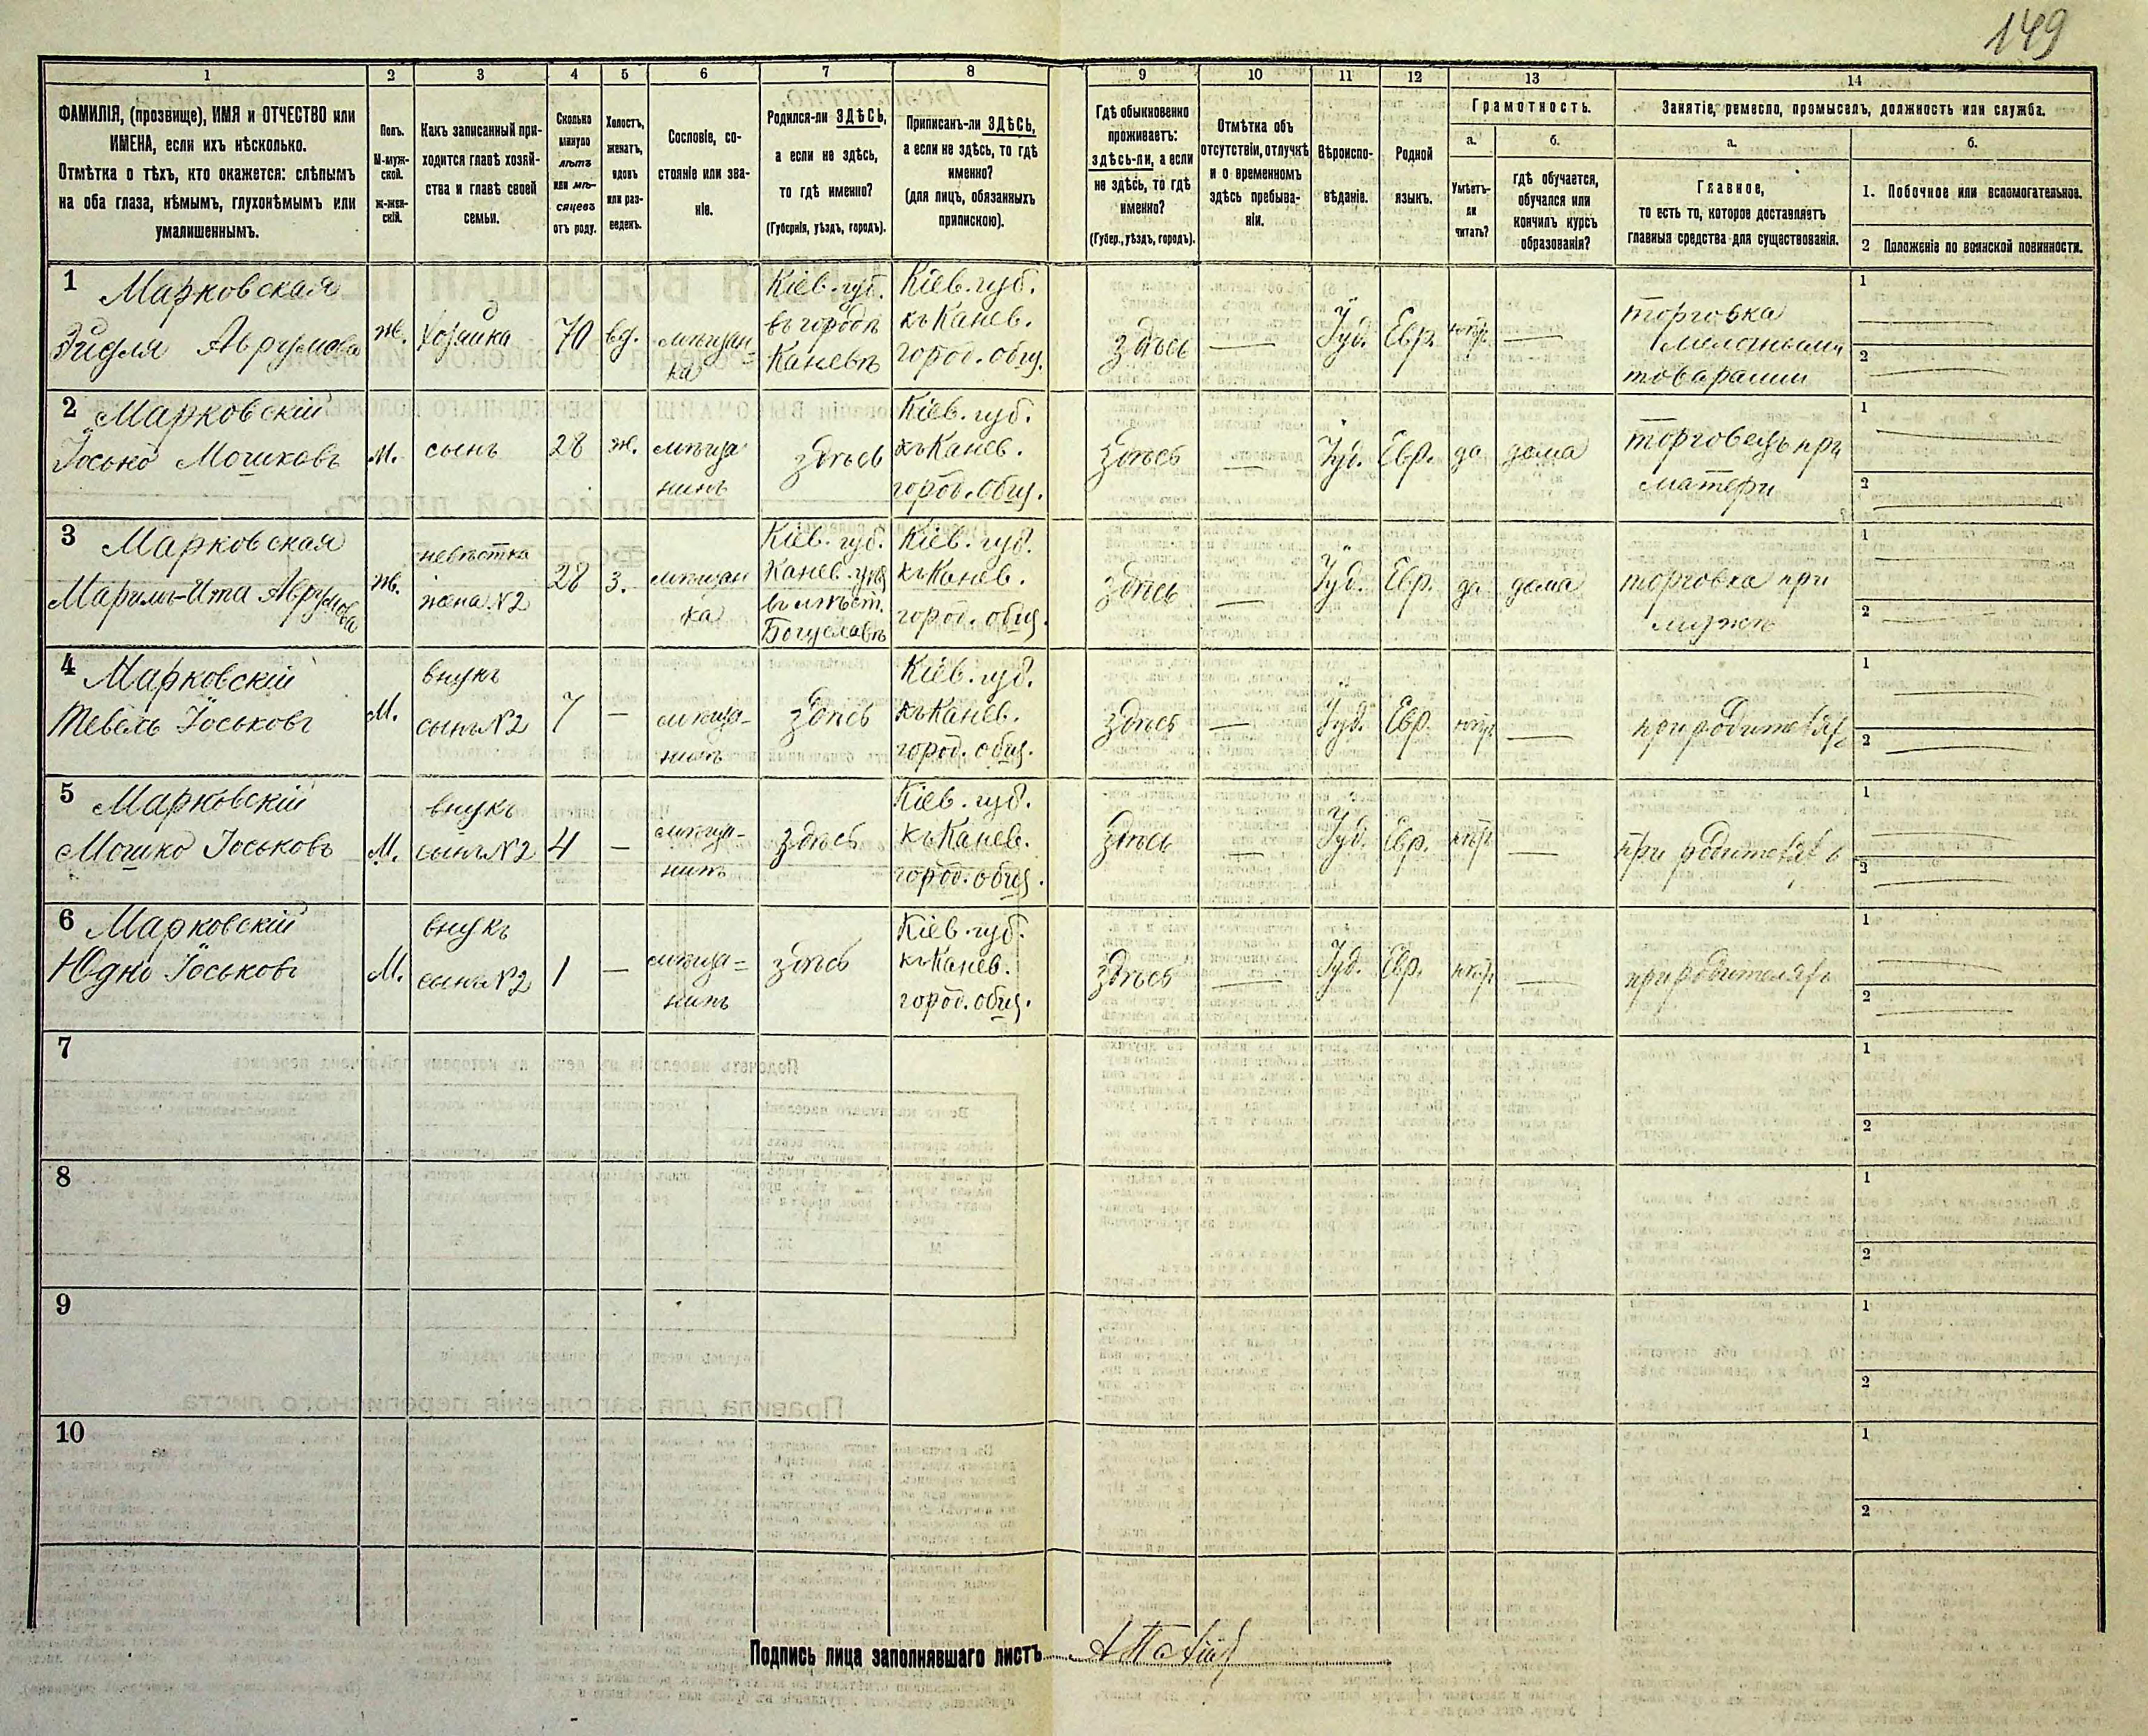 149
1 2 3 4 5 6 7 8 9 10 11 12 13 14
ФАМИЛІЯ, (прозвище), ИМЯ и ОТЧЕСТВО или
ИМЕНА, если ихъ нѣсколько.
Отмѣтка о тѣхъ, кто окажется: слѣпымъ
на оба глаза, нѣмымъ, глухонѣмымъ или
умалишеннымъ.
Полъ.
М-муж-
ской.
Ж-жен-
скій.
Какъ записанный при-
ходится главѣ хозяй-
ства и главѣ своей
семьи.
Сколько
минуло
лѣтъ
или мѣ-
сяцевъ
отъ роду.
Холостъ,
женатъ,
вдовъ
или раз-
веденъ.
Сословіе, со-
стояніе или зва-
ніе.
Родился-ли ЗДѢСЬ,
а если не здѣсь,
то гдѣ именно?
(Губернія, уѣздъ, городъ).
Приписанъ-ли ЗДѢСЬ,
а если не здѣсь, то гдѣ
именно?
(для лицъ, обязанныхъ
припискою).
Гдѣ обыкновенно
проживаетъ:
здѣсь-ли, а если
не здѣсь, то гдѣ
именно?
(Губер., уѣздъ, городъ).
Отмѣтка объ
отсутствіи, отлучкѣ
и о временномъ
здѣсь пребыва-
ніи.
Вѣроиспо-
вѣданіе.
Родной
языкъ.
Грамотность.
а.
Умѣетъ-
ли
читать?
б.
гдѣ обучается,
обучался или
кончилъ курсъ
образованія?
Занятіе, ремесло, промыселъ, должность или служба.
а.
Главное,
то есть то, которое доставляетъ
главныя средства для существованія.
б.
1. Побочное или вспомогательное.
2 Положеніе по воинской повинности.
1 Марковская
Эйдля Аврумова
ж.
хозяйка
70
вд.
мѣщан-
ка
Кіев. губ.
въ городѣ
Каневѣ
Кіев. губ.
къ Канев.
город. общ.
здѣсь
—
Іуд.
Евр.
—
торговка
мелочными
товарами
1
2
2 Марковскій
Іосько Мошковъ
М.
сынъ
28
ж.
мѣща
нинъ
здѣсь
Кіев. губ.
къ Канев.
город. общ.
здѣсь
—
Іуд.
Евр.
да
дома
торговецъ при
матери
1
2
3 Марковская
Маримъ-Ита Аврумова
Ж.
невѣстка
жена №2
28
з.
мѣщан
ка
Кіев. губ.
Канев. уѣз.
въ мѣст.
Богуславѣ
Кіев. губ.
къ Канев.
город. общ.
здѣсь
—
Іуд.
Евр.
да
дома
торговка при
мужѣ
1
2
4 Марковскій
Тевель Іоськовъ
М.
внукъ
сынъ №2
7
—
мѣща-
нинъ
здѣсь
Кіев. губ.
къ Канев.
город. общ.
здѣсь
—
Іуд.
Евр.
—
при родителяхъ
1
2
5 Марковскій
Мошко Іоськовъ
М.
внукъ
сынъ №2
4
—
мѣща-
нинъ
здѣсь
Кіев. губ.
къ Канев.
город. общ.
здѣсь
—
Іуд.
Евр.
—
при родителяхъ
1
2
6 Марковскій
Юдко Іоськовъ
М.
внукъ
сынъ №2
1
—
мѣща=
нинъ
здѣсь
Кіев. губ.
къ Канев.
город. общ.
здѣсь
—
Іуд.
Евр.
—
при родителяхъ
1
2
7
1
2
8
1
2
9
1
2
10
1
2
Подпись лица заполнявшаго листъ